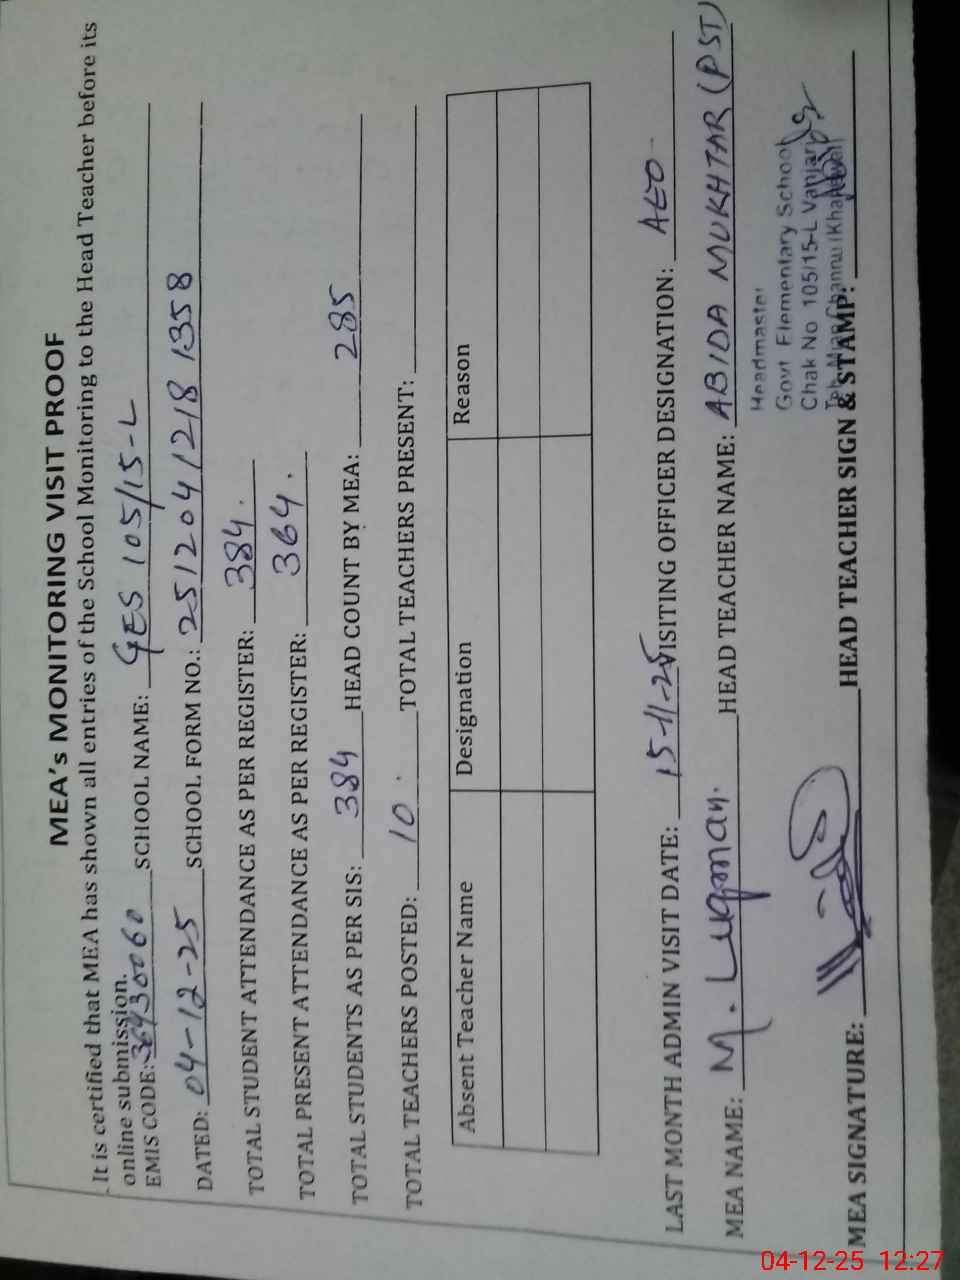 MEA's MONITORING VISIT PROOF
It is certified that MEA has shown all entries of the School Monitoring to the Head Teacher before its
online submission.
EMIS CODE: 36430060 SCHOOL NAME: GES 105/15-L
DATED: 04-12-25 SCHOOL FORM NO.: 251204 1218 1358
TOTAL STUDENT ATTENDANCE AS PER REGISTER: 384.
TOTAL PRESENT ATTENDANCE AS PER REGISTER: 364.
TOTAL STUDENTS AS PER SIS: 384 HEAD COUNT BY MEA: 285
TOTAL TEACHERS POSTED: 10 TOTAL TEACHERS PRESENT:
Absent Teacher Name Designation Reason
LAST MONTH ADMIN VISIT DATE: 15-11-25 VISITING OFFICER DESIGNATION: AEO
MEA NAME: M. Luqman. HEAD TEACHER NAME: ABIDA MUKHTAR (PST)
Headmaster
Govt Elementary School
Chak No 105/15-L Vanjari
Teh Mian Channu (Khanewal)
MEA SIGNATURE: HEAD TEACHER SIGN & STAMP:
04-12-25 12:27